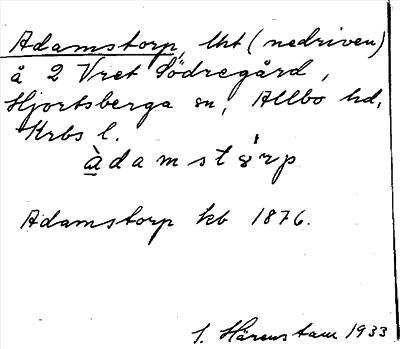 Adamstorp, lht (nedriven)
å 2 Vret Södregård,
Hjortsberga sn, Allbo hd,
Krbs l.
àdamstórp
Adamstorp kb 1876.
S. Härenstam 1933